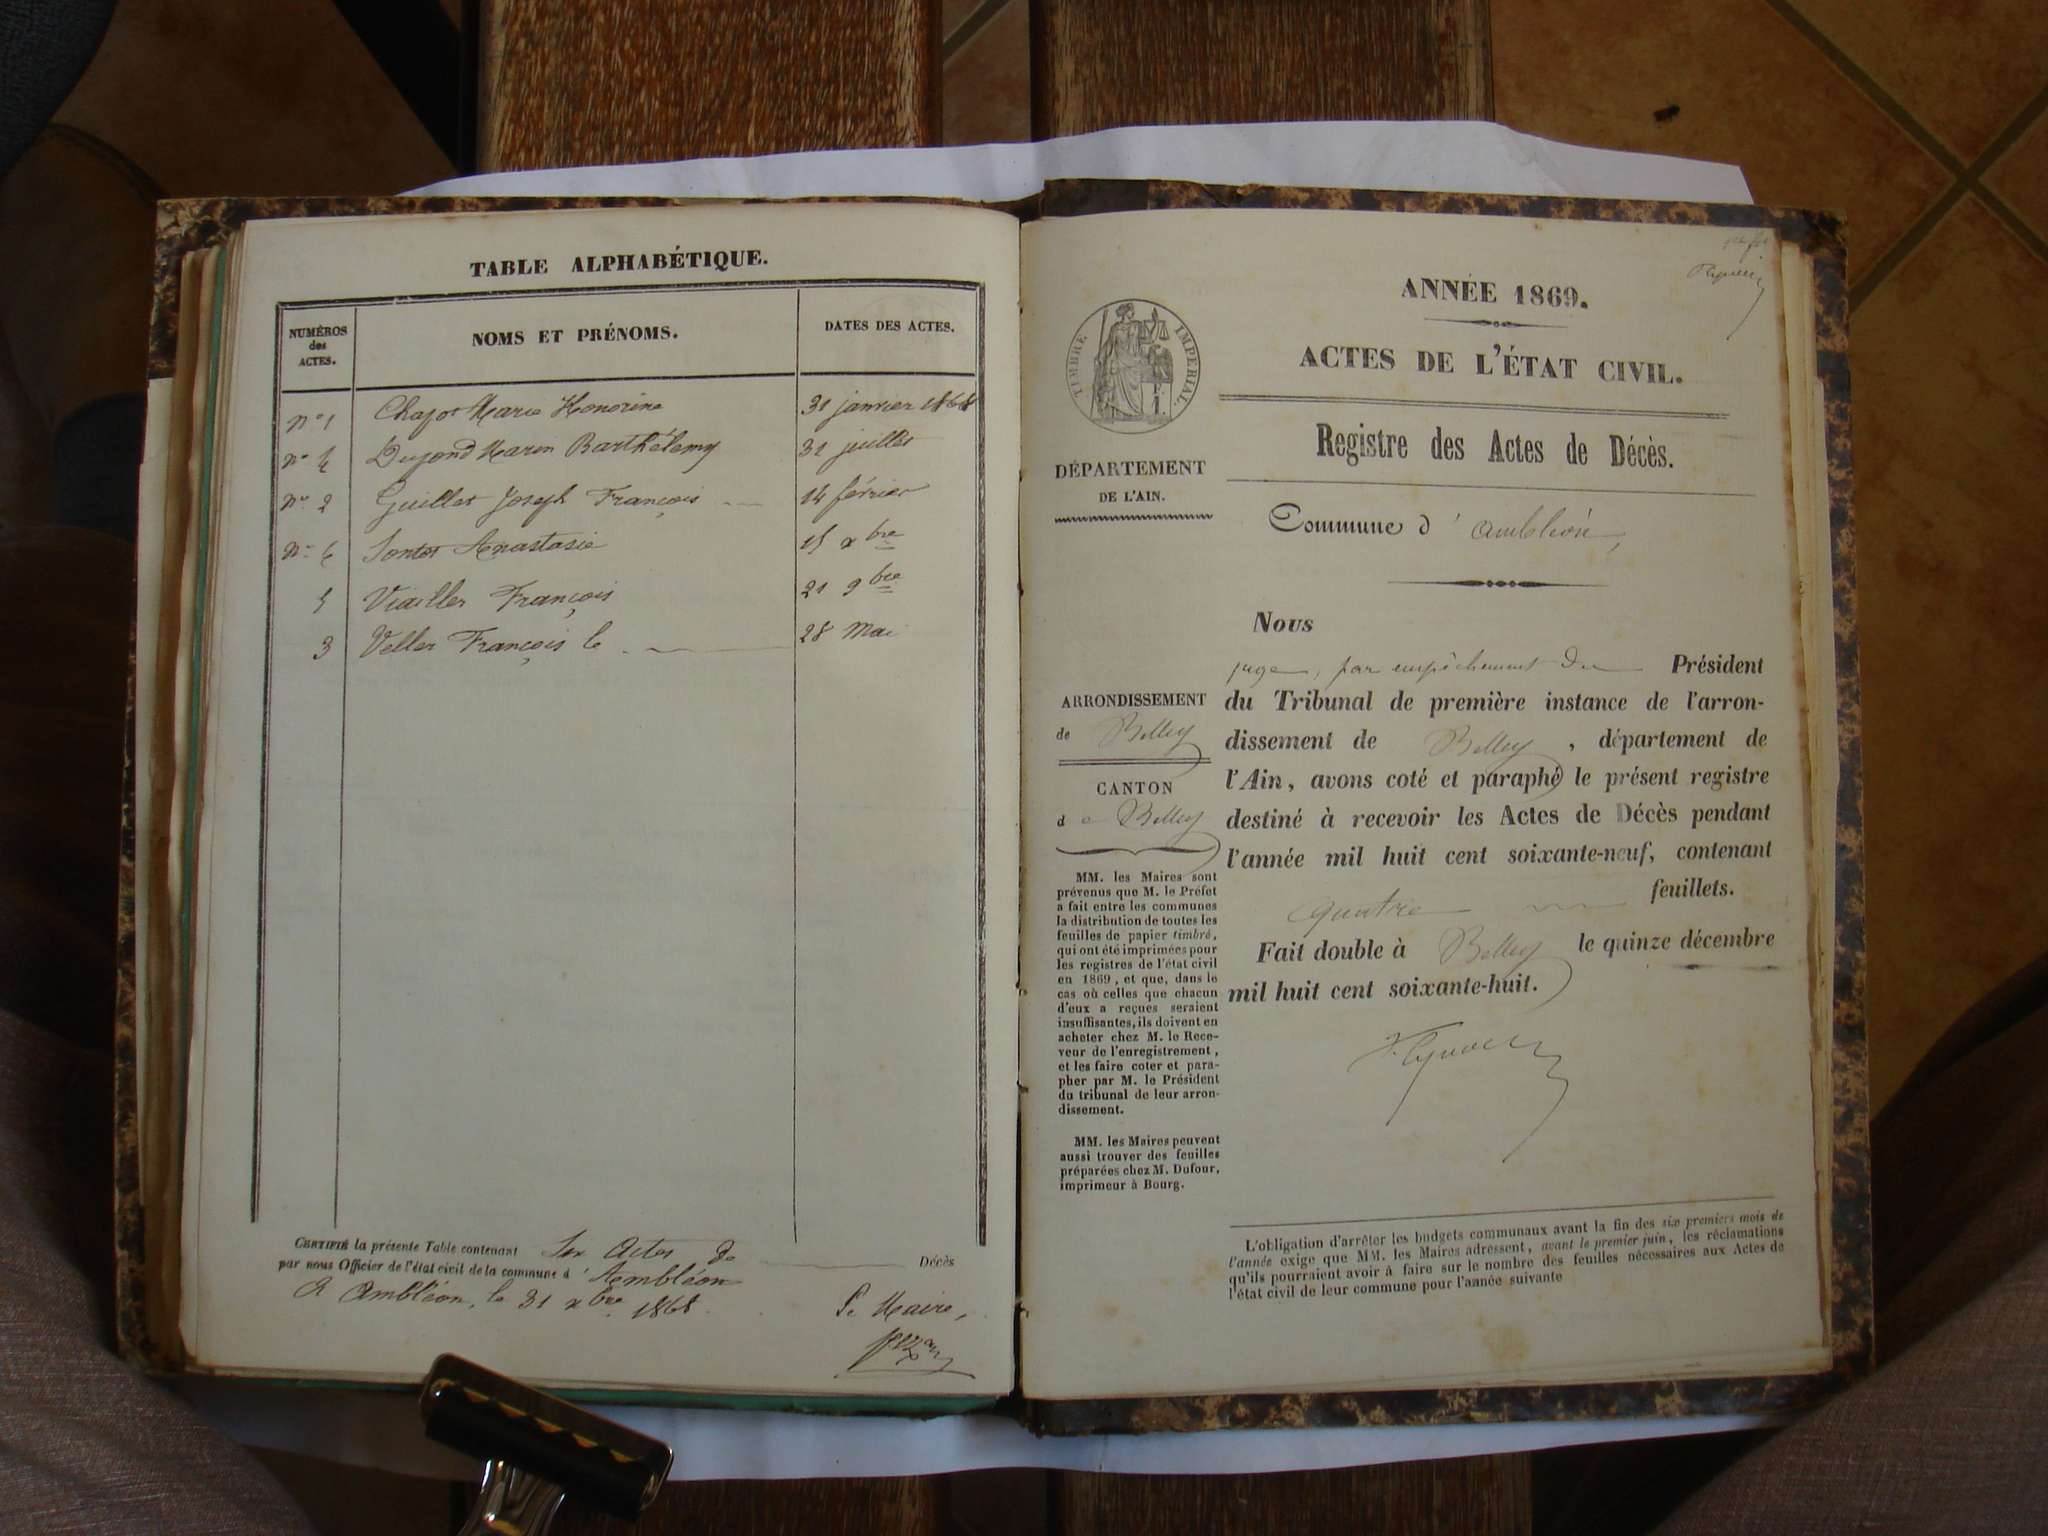 TABLE ALPHABÉTIQUE.
NUMÉROS des ACTES.
NOMS ET PRÉNOMS.
DATES DES ACTES.
N° 1 Marie Honorine 31 janvier 1868
N° 4 Marin Barthélemy 31 juillet
N° 2 Guillet Joseph François 14 février
N° 6 Anastasie 15 xbre
5 François 21 9bre
3 Veller François le 28 Mai
CERTIFIÉ la présente Table contenant Six Actes de Décès
par nous Officier de l'état civil de la commune d'Ambléon
A Ambléon, le 31 xbre 1868.
Le Maire,
ANNÉE 1869.
ACTES DE L'ÉTAT CIVIL.
TIMBRE IMPÉRIAL.
Registre des Actes de Décès.
DÉPARTEMENT
DE L'AIN.
Commune d'Ambléon,
ARRONDISSEMENT
de Belley
CANTON
de Belley
MM. les Maires sont
prévenus que M. le Préfet
a fait entre les communes
la distribution de toutes les
feuilles de papier timbré,
qui ont été imprimées pour
les registres de l'état civil
en 1869, et que, dans le
cas où celles que chacun
d'eux a reçues seraient
insuffisantes, ils doivent en
acheter chez M. le Rece-
veur de l'enregistrement,
et les faire coter et para-
pher par M. le Président
du tribunal de leur arron-
dissement.
MM. les Maires peuvent
aussi trouver des feuilles
préparées chez M. Dufour,
imprimeur à Bourg.
Nous
juge, par empêchement du Président
du Tribunal de première instance de l'arron-
dissement de Belley, département de
l'Ain, avons coté et paraphé le présent registre
destiné à recevoir les Actes de Décès pendant
l'année mil huit cent soixante-neuf, contenant
quatre feuillets.
Fait double à Belley le quinze décembre
mil huit cent soixante-huit.
L'obligation d'arrêter les budgets communaux avant la fin des six premiers mois de
l'année exige que MM. les Maires adressent, avant le premier juin, les réclamations
qu'ils pourraient avoir à faire sur le nombre des feuilles nécessaires aux Actes de
l'état civil de leur commune pour l'année suivante